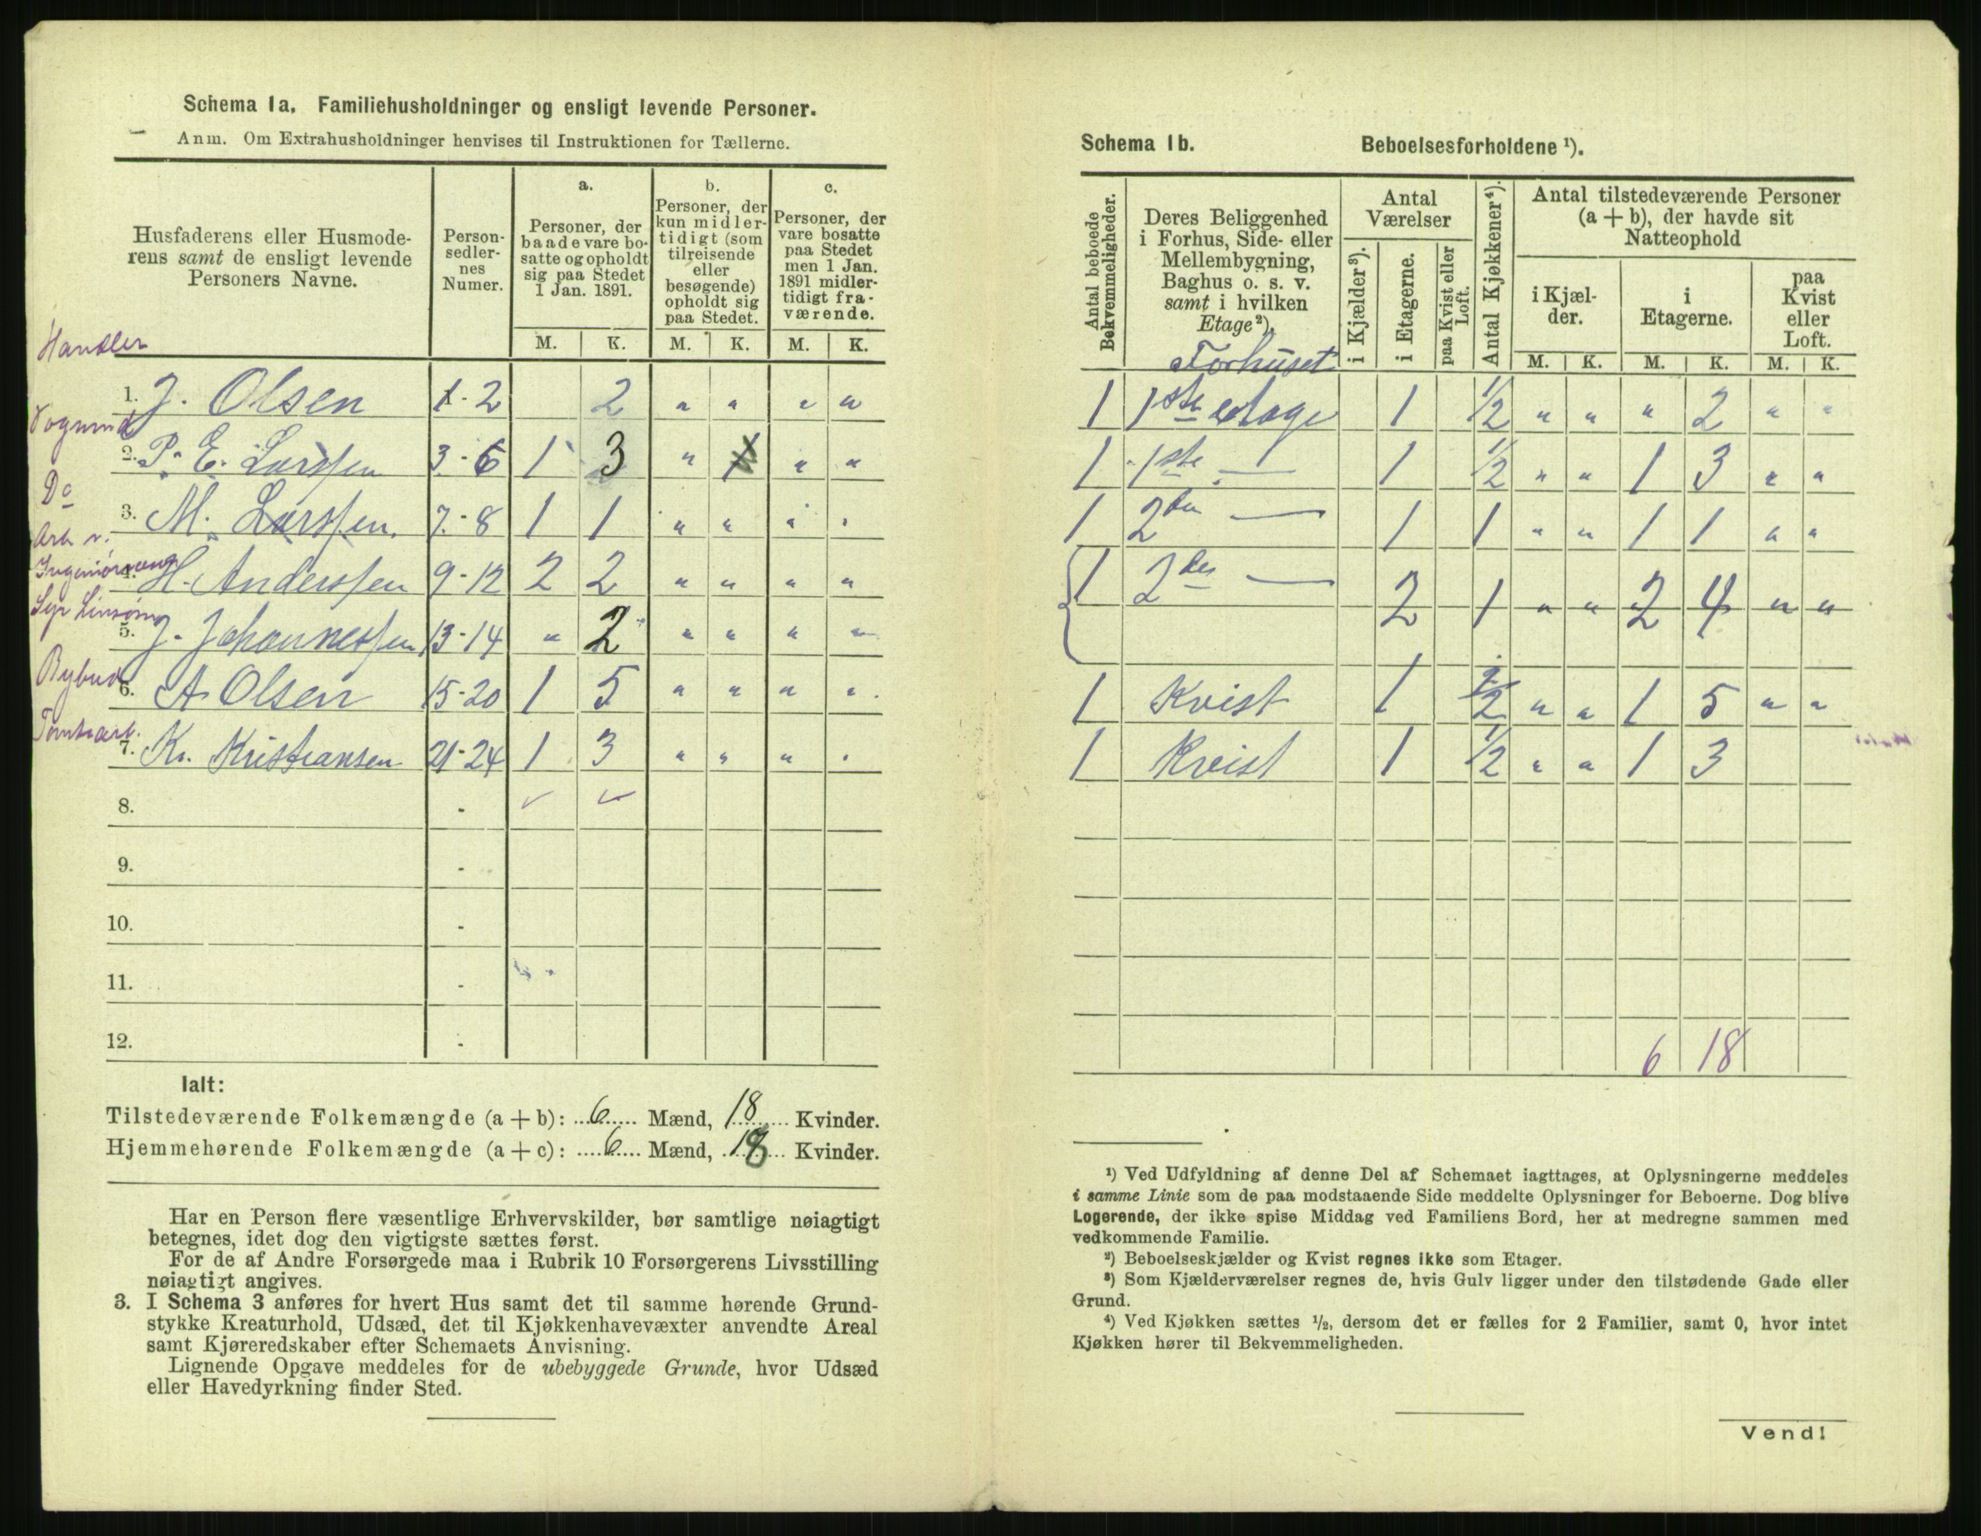 Schema 1a. Familiehusholdninger og ensligt levende Personer.
Anm. Om Extrahusholdninger henvises til Instruktionen for Tællerne.
Husfaderens eller Husmoderens samt de ensligt levende Personers Navne.
Personsedlernes Numer.
a. Personer, der baade vare bosatte og opholdt sig paa Stedet 1 Jan. 1891.
b. Personer, der kun midlertidigt (som tilreisende eller besøgende) opholdt sig paa Stedet.
c. Personer, der vare bosatte paa Stedet men 1 Jan. 1891 midlertidigt fraværende.
M. K. M. K. M. K.
Handler
1. J. Olsen 1-2 2 " " " "
Vognmd
2. P. E. Larssen 3-6 1 3 " 1 " "
Do
3. M. Larssen. 7-8 1 1 " " " "
Arb v.
Ingeniørvæng
4. H. Anderssen 9-12 2 2 " " " "
Syr Linsøm
5. J. Johannessen 13-14 " 2 " " " "
Bybud
6. A Olsen 15-20 1 5 " " " "
Tomtearb.
7. Kr. Kristiansen 21-24 1 3 " " " "
8. -
9. -
10. -
11. -
12. -
Ialt:
Tilstedeværende Folkemængde (a + b): 6 Mænd, 18 Kvinder.
Hjemmehørende Folkemængde (a + c): 6 Mænd, 18 Kvinder.
Har en Person flere væsentlige Erhvervskilder, bør samtlige nøiagtigt
betegnes, idet dog den vigtigste sættes først.
For de af Andre Forsørgede maa i Rubrik 10 Forsørgerens Livsstilling
nøiagtigt angives.
3. I Schema 3 anføres for hvert Hus samt det til samme hørende Grund-
stykke Kreaturhold, Udsæd, det til Kjøkkenhavevæxter anvendte Areal
samt Kjøreredskaber efter Schemaets Anvisning.
Lignende Opgave meddeles for de ubebyggede Grunde, hvor Udsæd
eller Havedyrkning finder Sted.
Schema 1b. Beboelsesforholdene ¹).
Antal beboede Bekvemmeligheder.
Deres Beliggenhed i Forhus, Side- eller Mellembygning, Baghus o. s. v. samt i hvilken Etage²).
Antal Værelser
i Kjælder³).
i Etagerne.
paa Kvist eller Loft.
Antal Kjøkkener⁴).
Antal tilstedeværende Personer (a + b), der havde sit Natteophold
i Kjælder.
i Etagerne.
paa Kvist eller Loft.
M. K. M. K. M. K.
Forhuset
1 1ste etage 1 1/2 " " " 2 " "
1 1ste — 1 1/2 " " 1 3 " "
1 2den — 1 1 " " 1 1 " "
1 2den — 2 1 " " 2 4 " "
1 Kvist 1 1/2 " " 1 5 " "
1 Kvist 1 1/2 " " 1 3
6 18
¹) Ved Udfyldning af denne Del af Schemaet iagttages, at Oplysningerne meddeles
i samme Linie som de paa modstaaende Side meddelte Oplysninger for Beboerne. Dog blive
Logerende, der ikke spise Middag ved Familiens Bord, her at medregne sammen med
vedkommende Familie.
²) Beboelseskjælder og Kvist regnes ikke som Etager.
³) Som Kjælderværelser regnes de, hvis Gulv ligger under den tilstødende Gade eller
Grund.
⁴) Ved Kjøkken sættes ½, dersom det er fælles for 2 Familier, samt 0, hvor intet
Kjøkken hører til Bekvemmeligheden.
Vend!